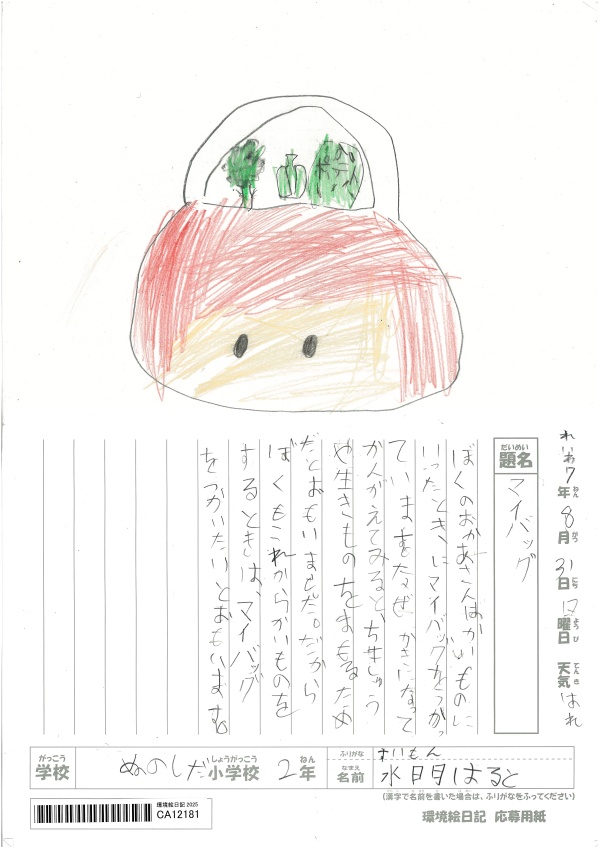 ポテト
れいわ7年ねん8月がつ31日にち日曜日ようび天気てんきはれ
題名だいめい
マイバッグ
ぼくのおかあさんはかいものに
いったとき、にマイバックをつかっ
ていますをなぜかきになって
かんがえてみるとちきゅう
や生きものをまもるため
だとおもいました。だから
ぼくもこれからかいものを
するときは、マイバッグ
をつかいたいとおもいます。
学校がっこう ぬのしだ小学校しょうがっこう 2年ねん
ふりがな すいもん
名前なまえ 水門はると
(漢字で名前を書いた場合は、ふりがなをふってください)
環境絵日記 2025
CA12181
環境絵日記 応募用紙